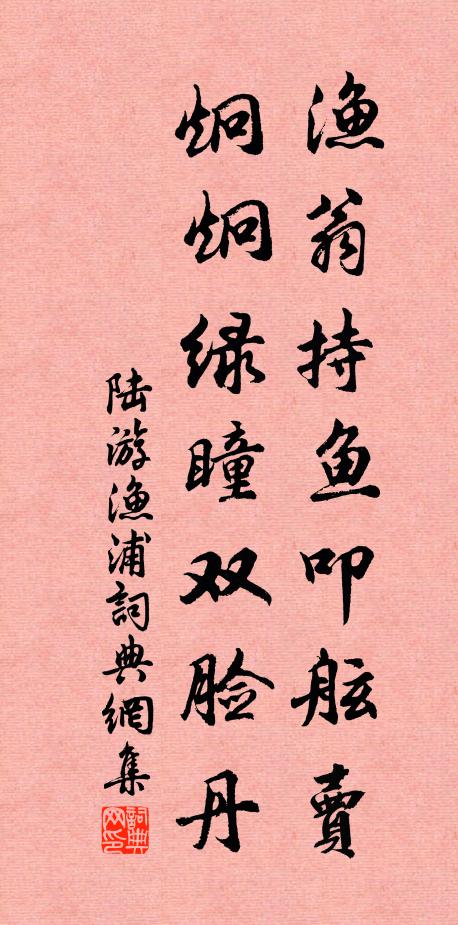 渔翁持鱼叩舷賣
炯炯绿瞳双脸丹
陆游渔浦詞典網集
詞典网印